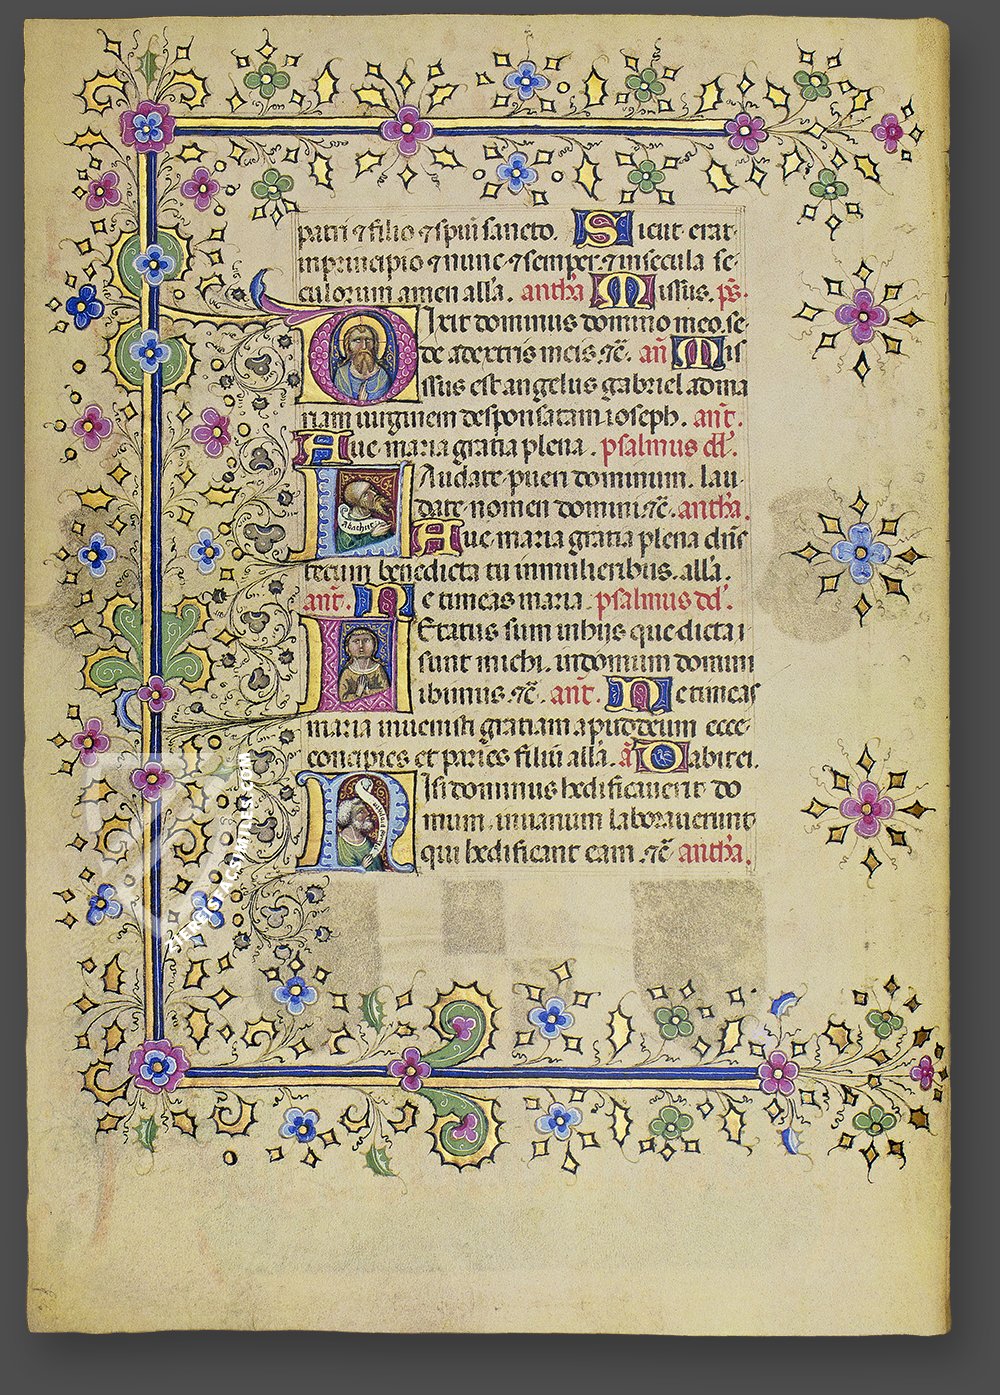 patri ⁊ filio ⁊ spiu̅i sancto. Sicut erat
in principio ⁊ nunc ⁊ semper ⁊ in secula se-
culorum amen alla̅. antha̅ Missus. ps̅.
Dixit dominus domino meo. se-
de a dextris meis. ⁊c̅. an̅ Mis
ssus est angelus gabriel ad ma
riam uirginem desponsatam ioseph. ant̅.
Aue maria gratia plena. psalmus dd̅.
LAudate pueri dominum. lau-
date nomen domini. ⁊c̅. antha̅.
Abachuc
Aue maria gratia plena dn̅s
tecum benedicta tu in mulieribus. alla̅.
ant̅. Ne timeas maria. psalmus dd̅.
LEtatus sum in hijs que dicta
sunt michi. in domum domini
ibimus. ⁊c̅. ant̅. Ne timeas
maria inuenisti gratiam apud deum ecce-
concipies et paries filiu̅ alla̅. a̅ Dabit ei.
NIsi dominus hedificauerit do
mum. in uanum laborauerunt
qui hedificant eam. ⁊c̅ antha̅.
ZIEREISFACSIMILES.COM